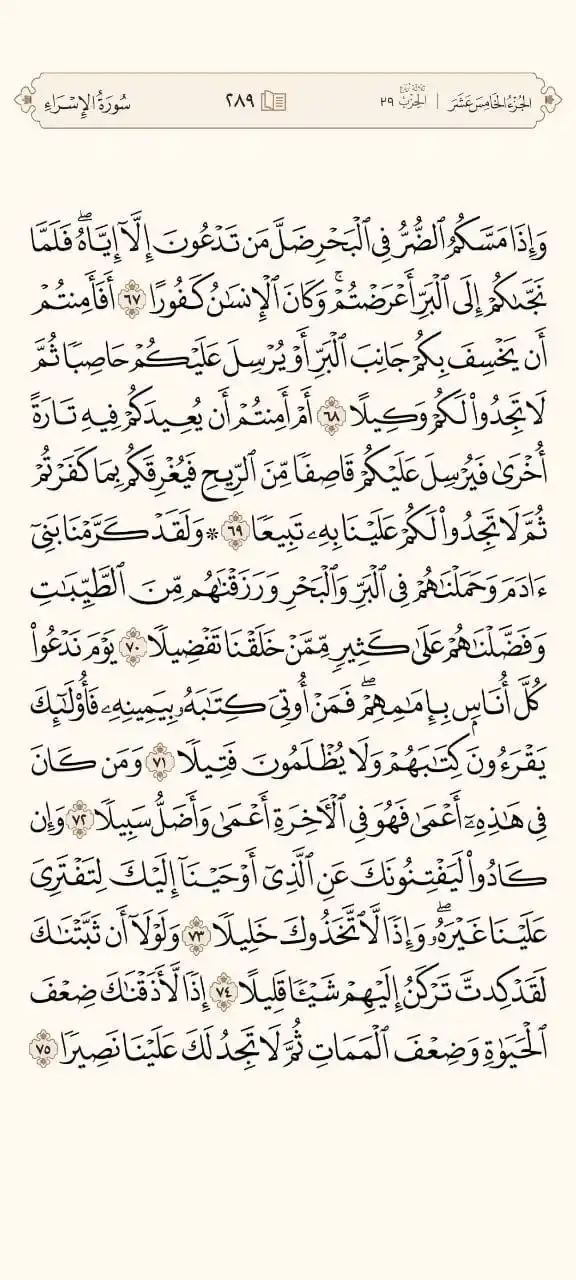 الجُزْءُ الخَامِسَ عَشَرَ | الحِزْبُ ٢٩ ٢٨٩ سُورَةُ الإِسْرَاءِ
وَإِذَا مَسَّكُمُ ٱلضُّرُّ فِي ٱلۡبَحۡرِ ضَلَّ مَن تَدۡعُونَ إِلَّآ إِيَّاهُۖ فَلَمَّا
نَجَّىٰكُمۡ إِلَى ٱلۡبَرِّ أَعۡرَضۡتُمۡۚ وَكَانَ ٱلۡإِنسَٰنُ كَفُورًا ٦٧ أَفَأَمِنتُمۡ
أَن يَخۡسِفَ بِكُمۡ جَانِبَ ٱلۡبَرِّ أَوۡ يُرۡسِلَ عَلَيۡكُمۡ حَاصِبٗا ثُمَّ
لَا تَجِدُواْ لَكُمۡ وَكِيلًا ٦٨ أَمۡ أَمِنتُمۡ أَن يُعِيدَكُمۡ فِيهِ تَارَةً
أُخۡرَىٰ فَيُرۡسِلَ عَلَيۡكُمۡ قَاصِفٗا مِّنَ ٱلرِّيحِ فَيُغۡرِقَكُم بِمَا كَفَرۡتُمۡ
ثُمَّ لَا تَجِدُواْ لَكُمۡ عَلَيۡنَا بِهِۦ تَبِيعٗا ٦٩ ۞ وَلَقَدۡ كَرَّمۡنَا بَنِيٓ
ءَادَمَ وَحَمَلۡنَٰهُمۡ فِي ٱلۡبَرِّ وَٱلۡبَحۡرِ وَرَزَقۡنَٰهُم مِّنَ ٱلطَّيِّبَٰتِ
وَفَضَّلۡنَٰهُمۡ عَلَىٰ كَثِيرٖ مِّمَّنۡ خَلَقۡنَا تَفۡضِيلٗا ٧٠ يَوۡمَ نَدۡعُواْ
كُلَّ أُنَاسِۭ بِإِمَٰمِهِمۡۖ فَمَنۡ أُوتِيَ كِتَٰبَهُۥ بِيَمِينِهِۦ فَأُوْلَٰٓئِكَ
يَقۡرَءُونَ كِتَٰبَهُمۡ وَلَا يُظۡلَمُونَ فَتِيلٗا ٧١ وَمَن كَانَ
فِي هَٰذِهِۦٓ أَعۡمَىٰ فَهُوَ فِي ٱلۡأٓخِرَةِ أَعۡمَىٰ وَأَضَلُّ سَبِيلٗا ٧٢ وَإِن
كَادُواْ لَيَفۡتِنُونَكَ عَنِ ٱلَّذِيٓ أَوۡحَيۡنَآ إِلَيۡكَ لِتَفۡتَرِيَ
عَلَيۡنَا غَيۡرَهُۥۖ وَإِذٗا لَّٱتَّخَذُوكَ خَلِيلٗا ٧٣ وَلَوۡلَآ أَن ثَبَّتۡنَٰكَ
لَقَدۡ كِدتَّ تَرۡكَنُ إِلَيۡهِمۡ شَيۡـٔٗا قَلِيلًا ٧٤ إِذٗا لَّأَذَقۡنَٰكَ ضِعۡفَ
ٱلۡحَيَوٰةِ وَضِعۡفَ ٱلۡمَمَاتِ ثُمَّ لَا تَجِدُ لَكَ عَلَيۡنَا نَصِيرٗا ٧٥